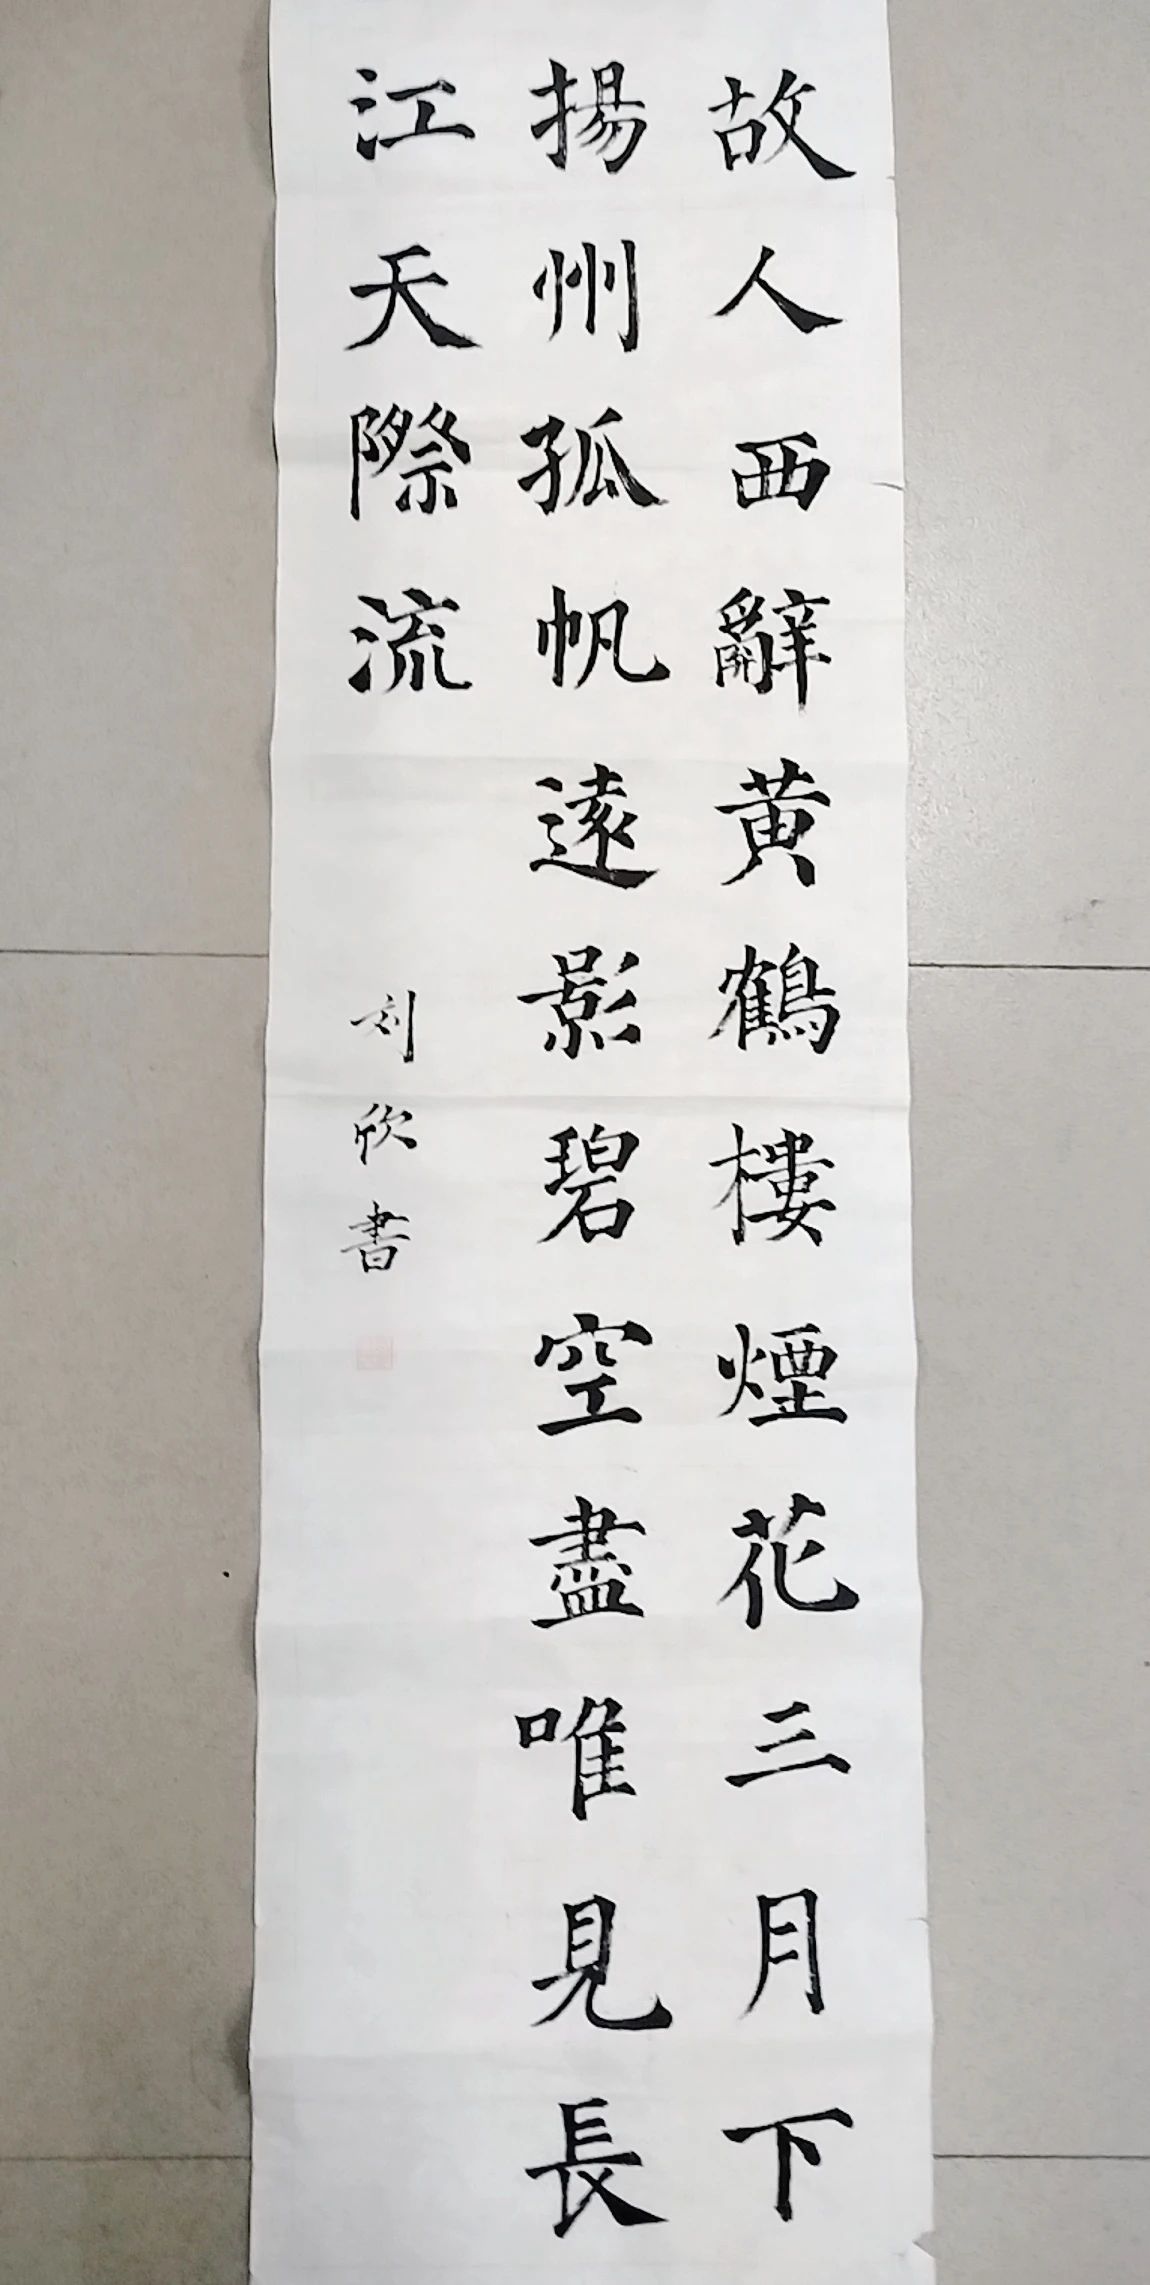 故人西辭黄鶴樓煙花三月下
揚州孤帆遠影碧空盡唯見長
江天際流
刘欣書